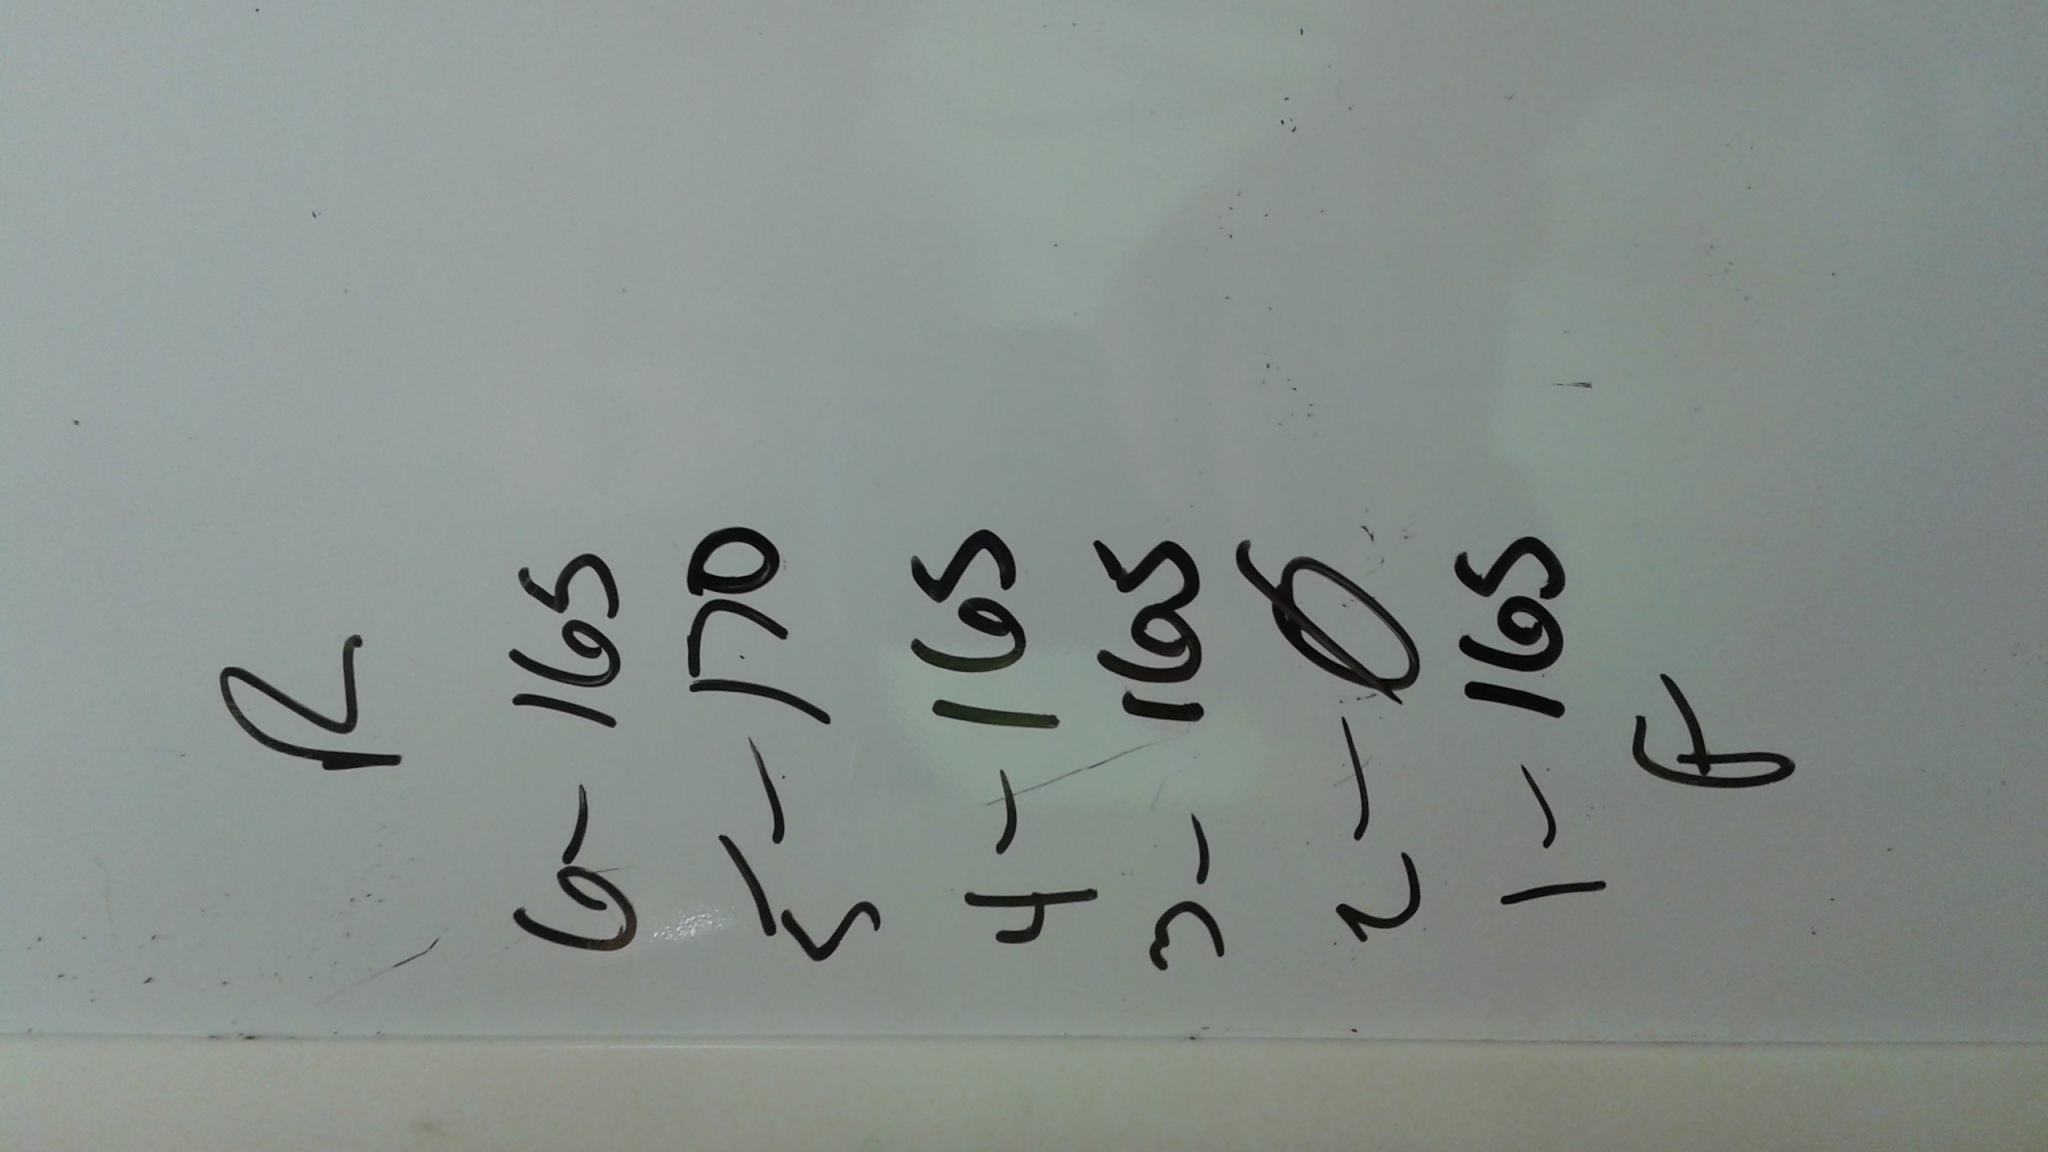 R
6- 165
5- 170
4- 165
3- 165
2- Ø
1- 165